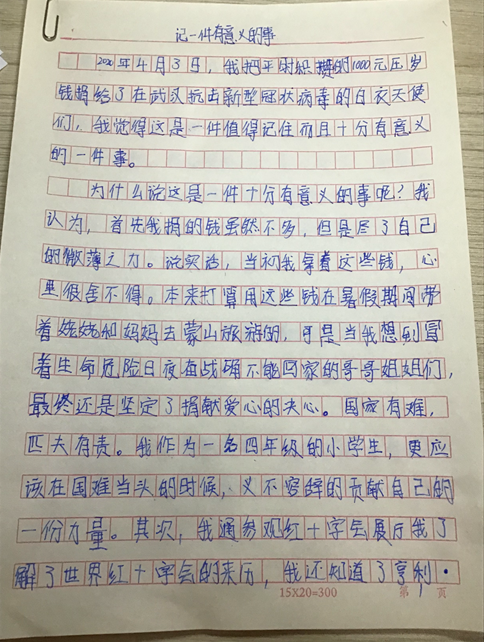 记一件有意义的事
2020年4月3日，我把平时积攒的1000元压岁
钱捐给了在武汉抗击新型冠状病毒的白衣天使
们，我觉得这是一件值得记住而且十分有意义
的一件事。
为什么说这是一件十分有意义的事呢？我
认为，首先我捐的钱虽然不多，但是尽了自己
的微薄之力。说实话，当初我拿着这些钱，心
里很舍不得。本来打算用这些钱在暑假期间带
着姥姥和妈妈去蒙山旅游的，可是当我想到冒
着生命危险日夜奋战确不能回家的哥哥姐姐们，
最终还是坚定了捐献爱心的决心。国家有难，
匹夫有责。我作为一名四年级的小学生，更应
该在国难当头的时候，义不容辞的贡献自己的
一份力量。其次，我通参观红十字会展厅我了
解了世界红十字会的来历，我还知道了亨利·
15X20=300
第 页